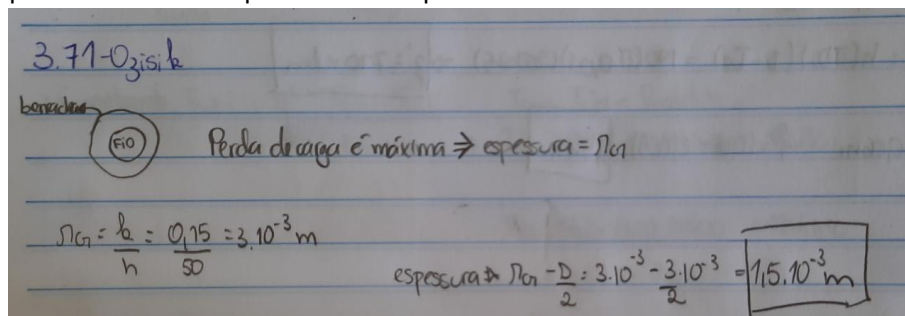 3.71-Ozisik
borracha
Fio
Perda de carga é máxima ⇒ espessura = rcr
rcr = k/h = 0,15/50 = 3.10⁻³ m
espessura → rcr - D/2 = 3.10⁻³ - 3.10⁻³/2 = 1,5.10⁻³ m